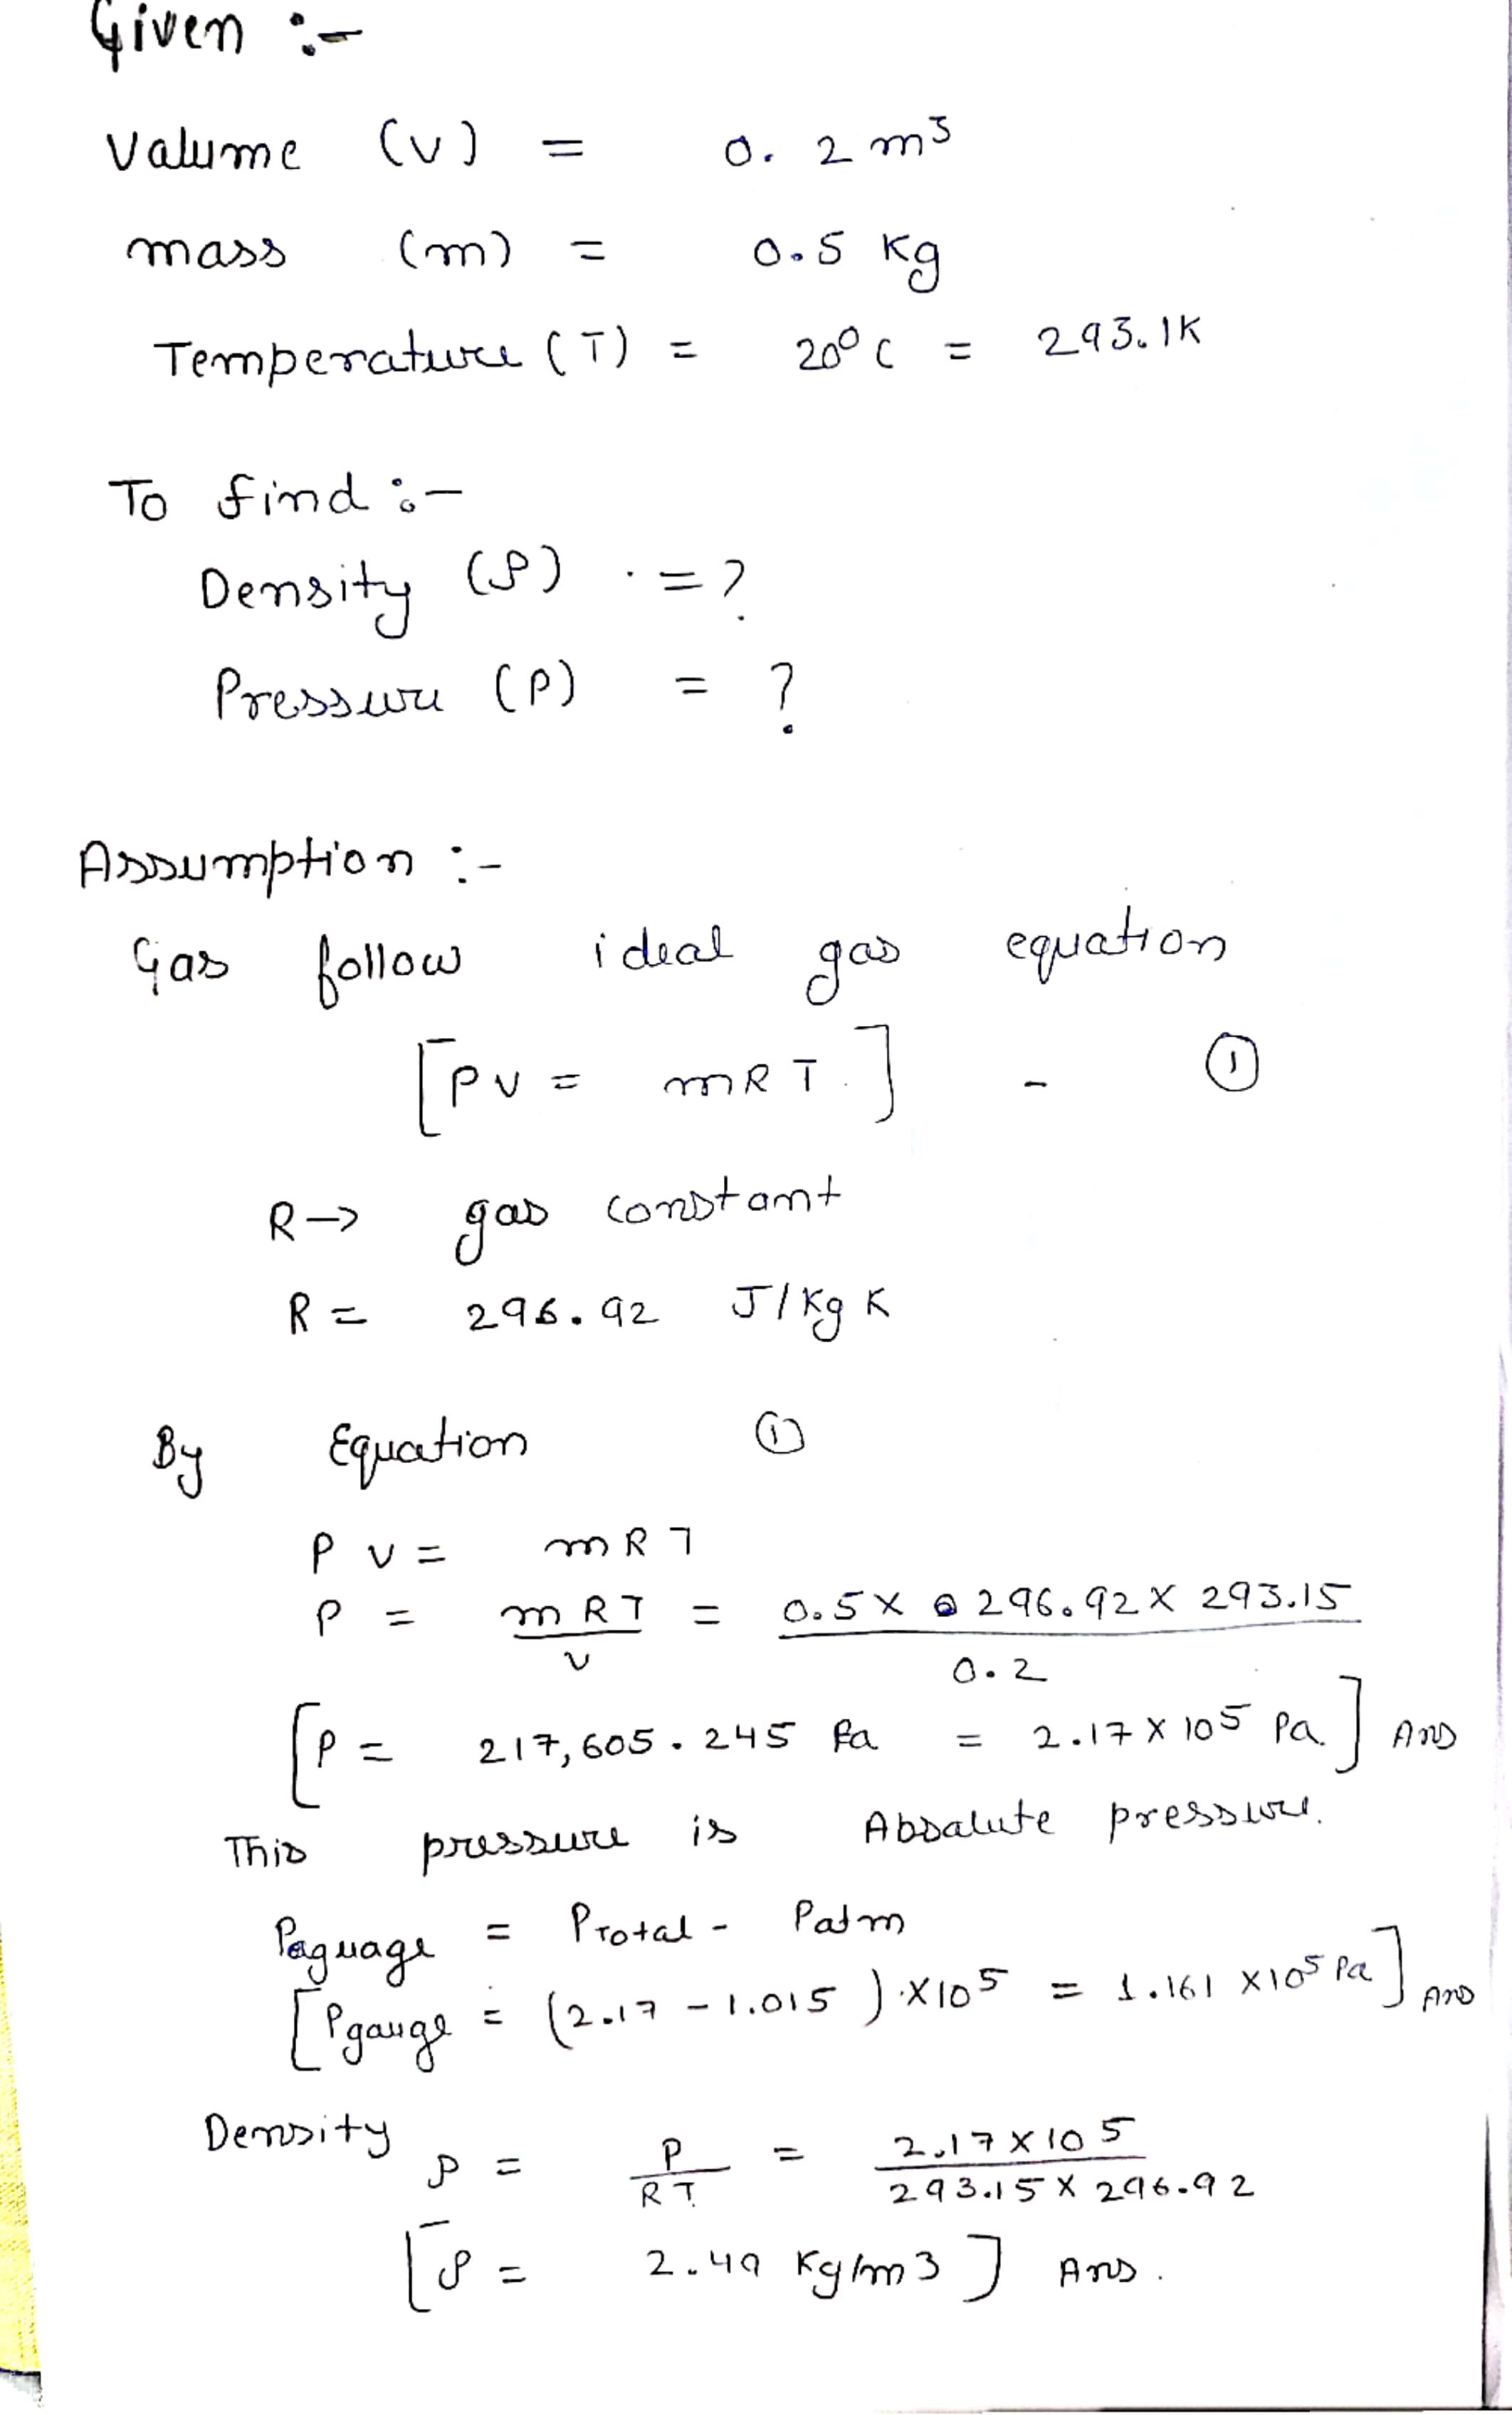 Given :-
Valume (v) = 0. 2 m3
mass (m) = 0.5 Kg
Temperature (T) = 20° C = 293.1K
To find :-
Density (ρ) = ?
Pressure (P) = ?
Assumption :-
Gas follow ideal gas equation
[PV = mRT] - ①
R → gas constant
R = 296.92 J/Kg K
By Equation ①
P V = mRT
P = mRT/V = 0.5 X 296.92 X 293.15 / 0.2
[P = 217,605.245 Pa = 2.17 X 105 Pa] Ans
This pressure is Absalute pressure.
Paguage = PTotal - Patm
[Pgauge = (2.17 - 1.015) X105 = 1.161 X105 Pa] Ans
Density ρ = P/RT = 2.17 X 105 / 293.15 X 296.92
[ρ = 2.49 Kg/m3] Ans.